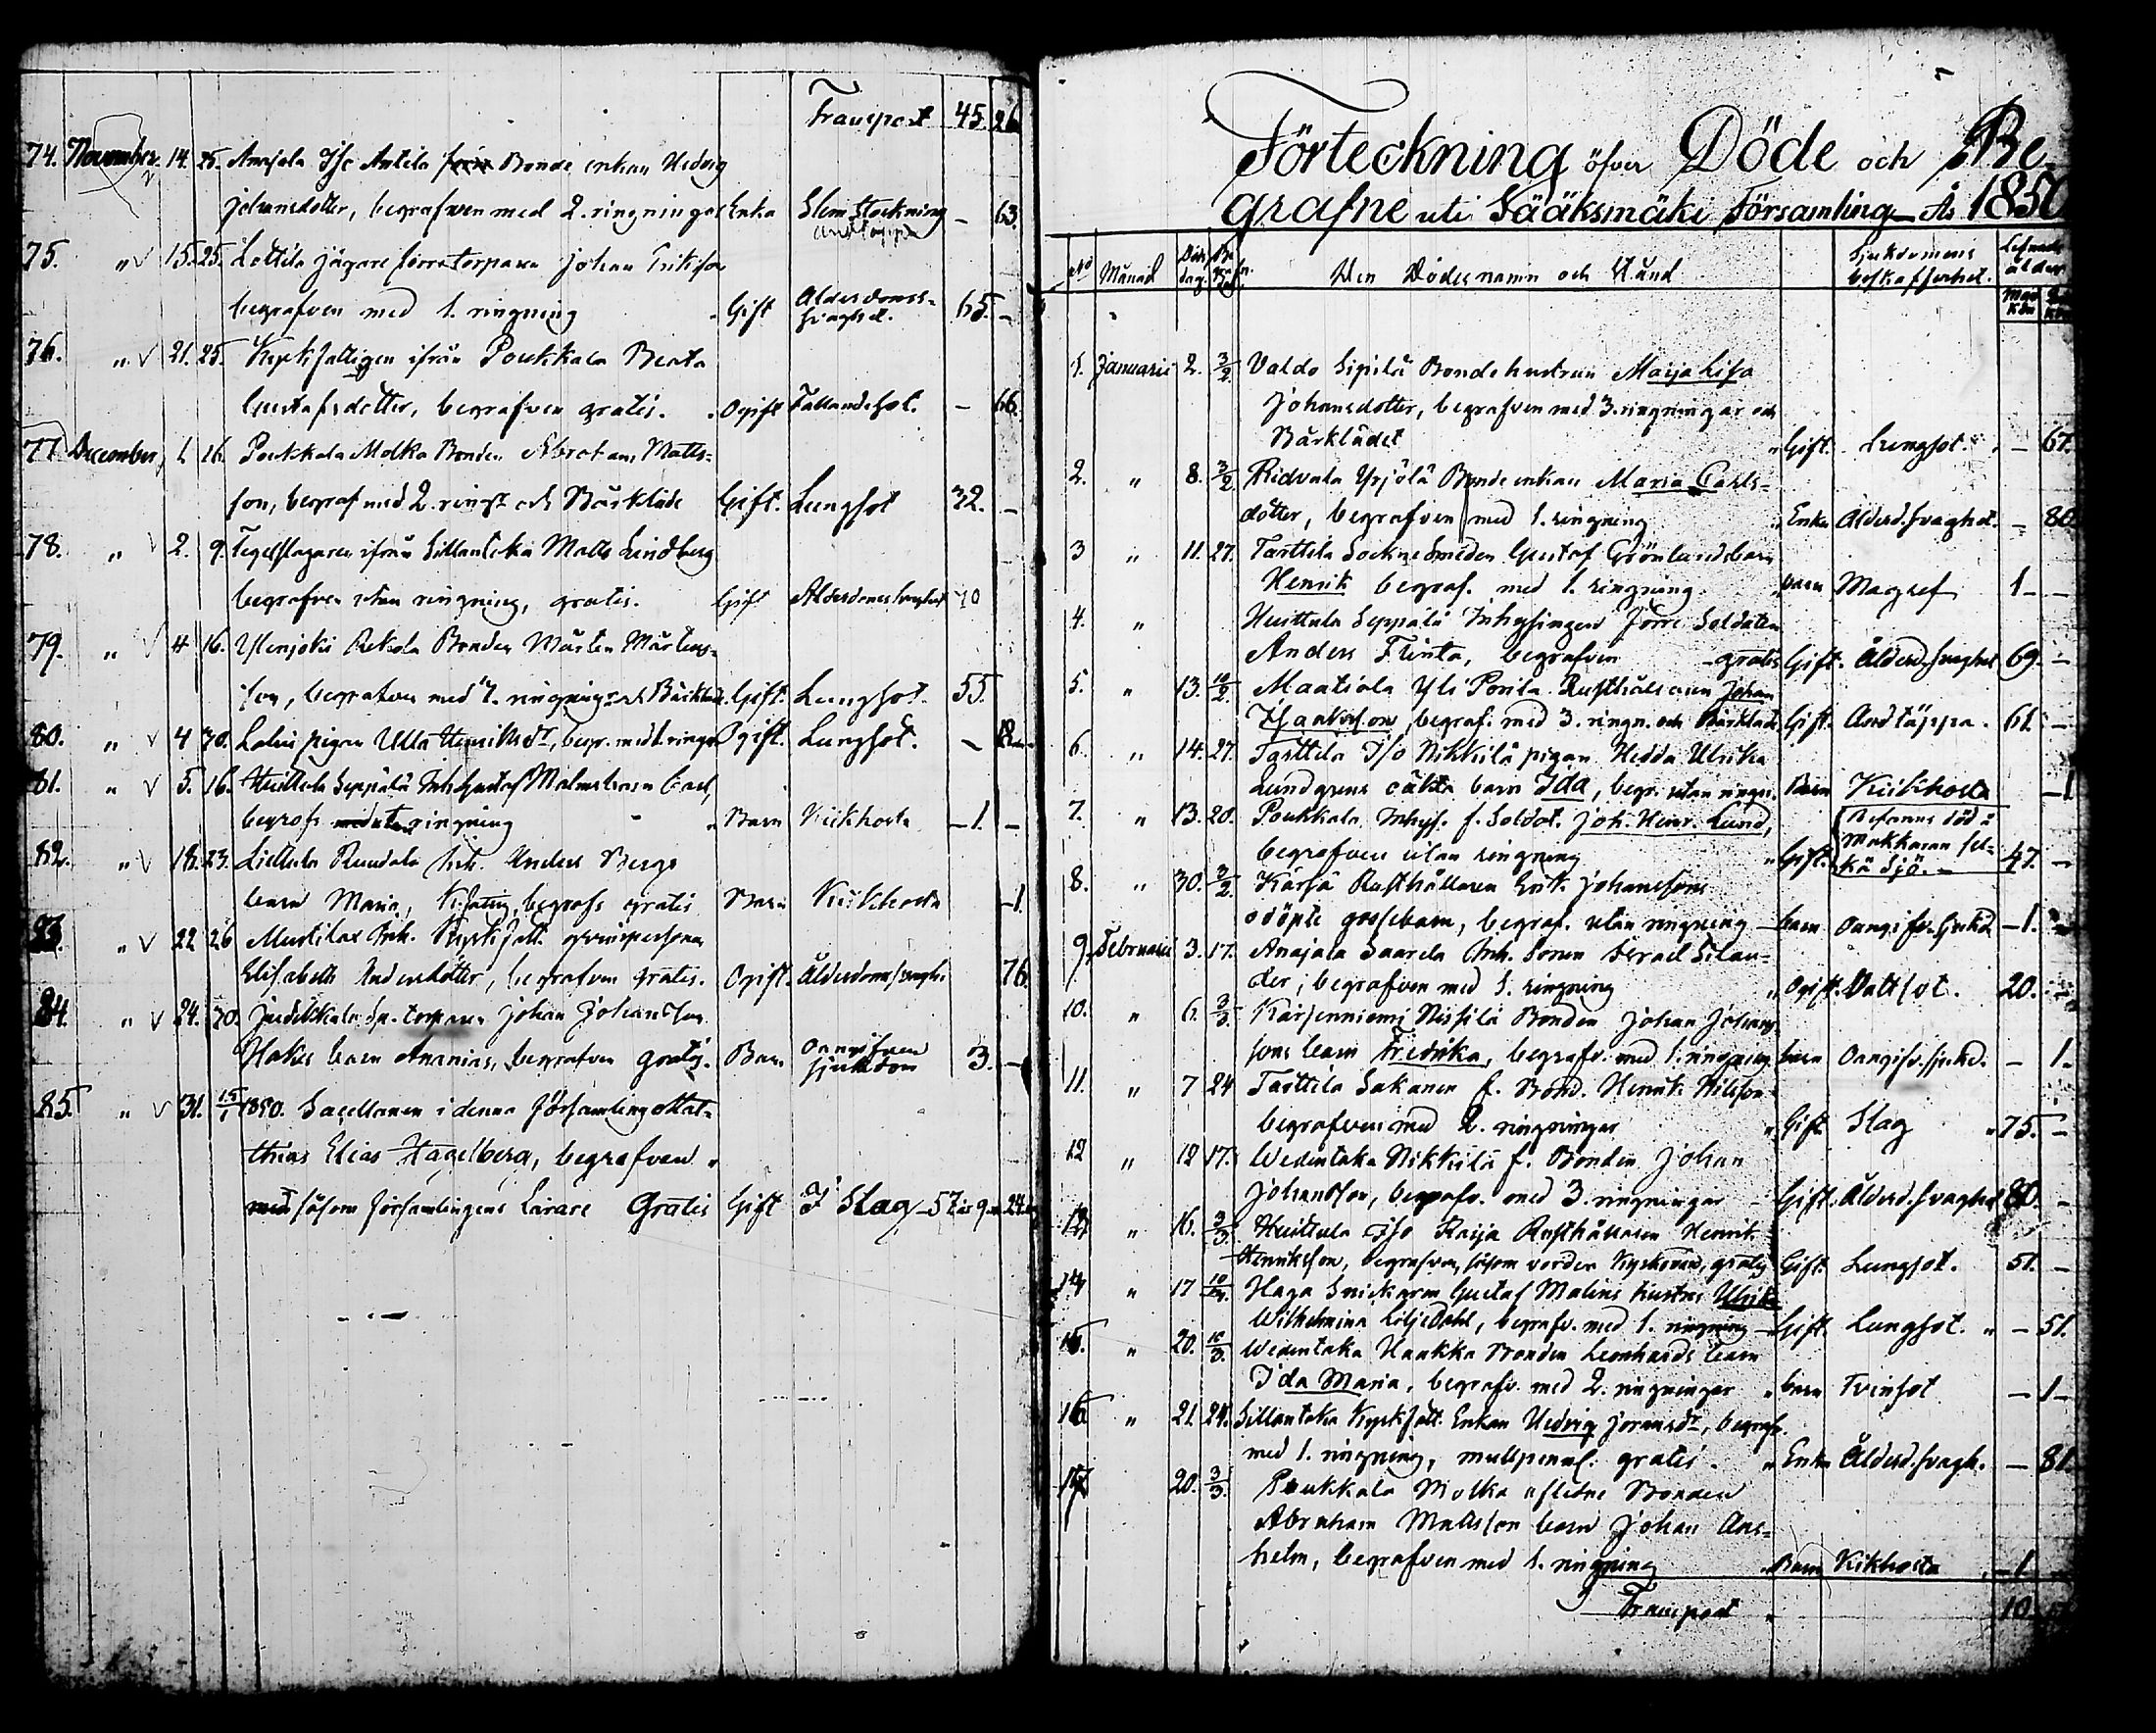 Transport 45. 26
74. November 14. 25. Anajala Iso Antila Bonde enkan Hedvig
Johansdotter, begrafven med 2. ringningar Enka Slem stockning — 63.
75. " 15. 25. Lottila Jägare förre torparen Johan Eriksson
begrafven med 1. ringning Gift Ålderdoms- 65. —
svaghet.
76. " 21. 25. Kyrkfattigen ifrån Poukkala Beata
Gustafsdotter, begrafven gratis. Ogift Fallandesot. — 66.
77. December 1. 16. Poukkala Molka Bonden Abraham Matts-
son, begraf. med 2. ringr och Bårkläde Gift. Lungsot 32. —
78. " 2. 9. Tegelslagaren ifrån Sillantaka Matts Lindberg
begrafven utan ringning, gratis. Gift Ålderdomssvaghet 70
79. " 4 16. Rekola Bonden Mårten Mårtens-
son, begrafven med ringningr och Bårkläde. Gift. Lungsot. 55.
80. " 4 30. pigan Ulla Henriksdr, begr. med 1. ringn. Ogift. Lungsot. —
81. " 5. 16. Huittula Seppälä Inh. Gustaf Malmström
begrafs utan ringning Barn Kikhosta — 1. —
82. " 18. 23. Liettula Inh. Anders Bergs
barn Maria, begrafs gratis Barn Kikhosta — 1.
83. " 22 26 Inh. Kyrkfatt. qvinspersonen
Elisabeth Andersdotter, begrafven gratis. Ogift. Ålderdomssvaghet 76.
84. " 24. 30. torparen Johan Johansson
barn Ananias, begrafven gratis. Barn Oangifven 3. —
sjukdom
85. " 31. 13/1 1850. Sacellanen i denna församling Mat-
thias Elias Hagelberg, begrafven
såsom församlingens Lärare Gratis Gift I Slag — 57 år 9 m. 24
Förteckning öfver Döde och Be-
grafne uti Sääksmäki Församling År 1850
No Månad Död dag. Den Dödes namn och Stånd Sjukdomens beskaffenhet. Lefnads ålder
Man kön
1. Januarii 2. 3/2 Valdo Sipilä Bondehustrun Maija Lisa
Johansdotter, begrafven med 3. ringningar och
Bårklädet Gift. Lungsot. — 67.
2. " 8. 3/2. Ridvala Yrjölä Bonde enkan Maria Carls-
dotter, begrafven med 1. ringning Enka Ålderd. svaghet. — 80.
3 " 11. 27. Tarttila Sockne Smeden Gustaf Grönlunds barn
Henrik begraf. med 1. ringning barn Magref 1 — —
4. " Huittula Seppälä Inhysingen Förre Soldaten
Anders Flinta, begrafven gratis Gift. Ålderd. svaghet 69. —
5. " 13. 10/2 Maatiala Yli Porila Rusthållaren Johan
Isaaksson, begraf. med 3. ringn. och Bårkläde Gift. Andtäppa. 61. —
6. " 14. 27. Tarttila I/o Nikkilä pigan Hedda Ulrika
Lundgrens oäkta barn Ida, begr. utan ringn. Barn Kikhosta — 1
7. " 13. 20. Poukkala Inhys. f. Soldat. Joh. Henr. Lund,
begrafven utan ringning Gift. 47. —
8. " 30. 3/2 Kärjä Rusthållaren Erik Johanssons
odöpte gossebarn, begraf. utan ringning — barn Oangifv. sjukd. — 1.
9. Februarii 3. 17. Anajala Saarela Inh. Sonen Israel Silan-
der, begrafven med 1. ringning Ogift. Vattsot. 20. —
10. " 6. 3/3. Kärjenniemi Nissilä Bonden Johan Johans-
sons barn Fredrika, begrafv. med 1. ringning barn Oangifv. sjukd. — 1.
11. " 7 24 Tarttila Sakanen f. Bond. Henrik Nilsson
begrafven med 2. ringningar Gift. Slag 75. —
12 " 12 17. Wedentaka Nikkilä f. Bonden Johan
Johansson, begrafv. med 3. ringningar Gift. Ålderd. svaghet 80. —
13. " 16. 3/3. Huittula Iso Raija Rusthållaren Henrik
Henriksson, begrafven, såsom vorden Kyrkovärd, gratis Gift. Lungsot. 51. —
14 " 17 10/3. Haga Snickaren Gustaf Malins hustru Ulrika
Wilhelmina Liljedahl, begrafv. med 1. ringning — Gift. Lungsot. — 51.
15. " 20. 10/3. Wedentaka Haakka Bonden Leonhards barn
Ida Maria, begrafv. med 2. ringningar barn Tvinsot — 1 —
16 " 21. 24. Sillantaka Kyrkfatt. Enkan Hedvig Joransdr, begraf.
med 1. ringning, mullpenn. gratis. Enka Ålderd. svagh. — 81.
17 20. 3/3. Poukkala Molka aflidne Bonden
Abraham Mattsson barn Johan Ans-
helm, begrafven med 1. ringning Barn Kikhosta — 1
Transport 10